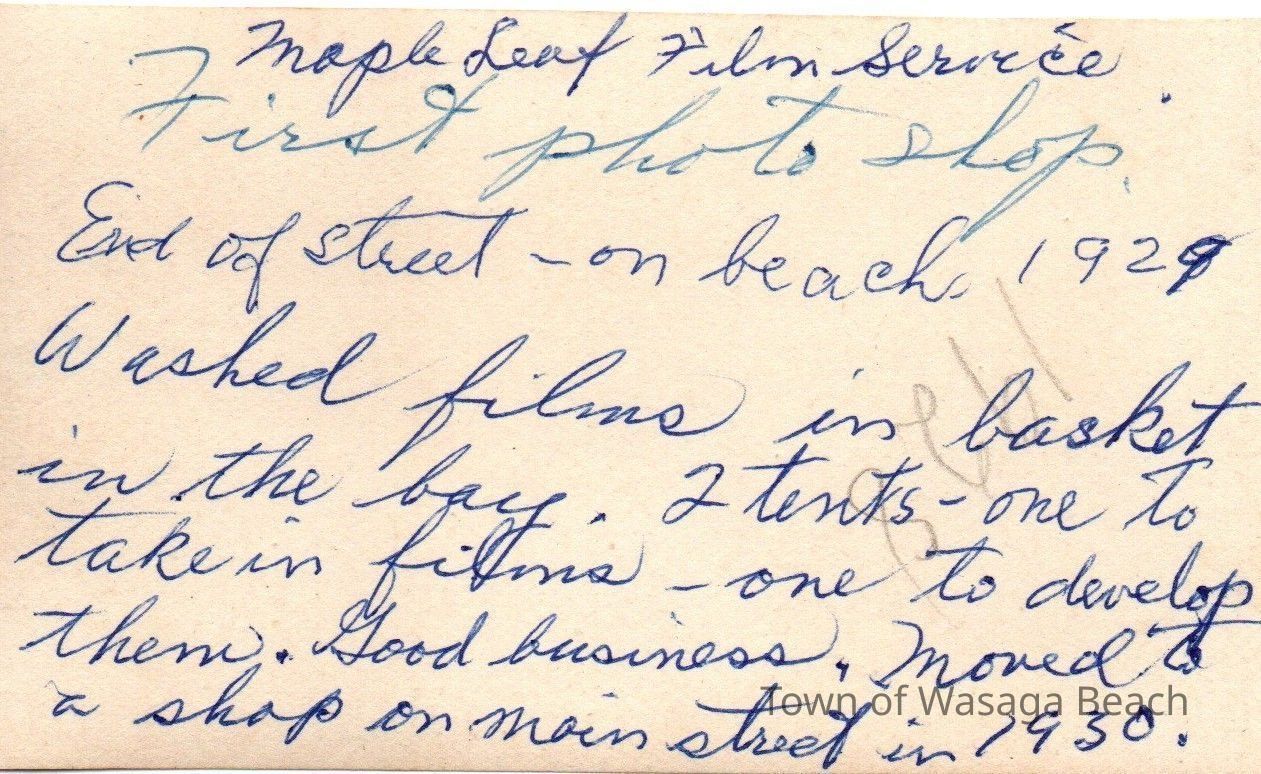 Maple Leaf Film Service.
First photo shop.
End of street - on beach. 1929
Washed films in basket
in the bay. 2 tents - one to
take in films - one to develop
them. Good business. Moved to
a shop on main street in 1930.
Town of Wasaga Beach